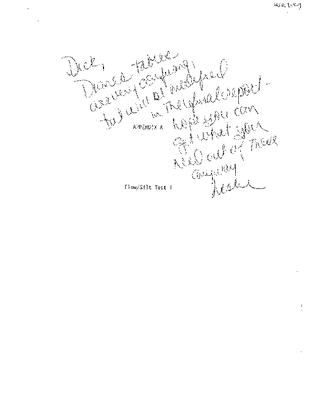 Dick,
These tables
are very confusing,
but will be modified
in the final report -
hope you can
get what you
need out of these
anyway!
Leslie
APPENDIX A
Flow/Silt Test 1